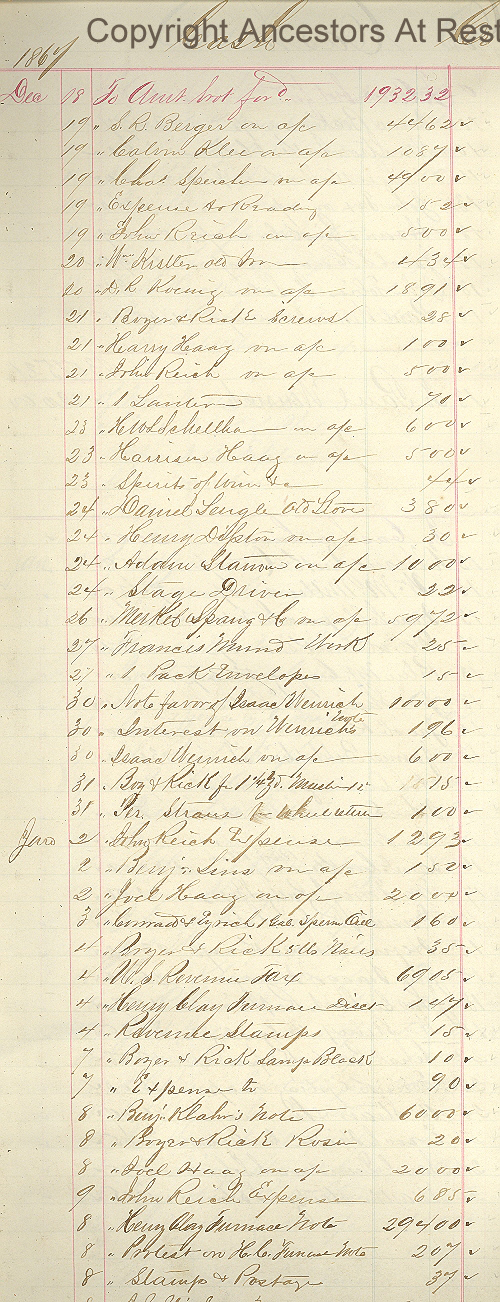 Copyright Ancestors At Rest
1867 Cash
Dec 18 To Amt brot ford. 1932 32
19 " S. R. Berger on a/c 44 62
19 " Calvin Klee on a/c 10 87
19 " Chas. Speicher on a/c 49 00
19 " Expense to Reading 1 52
19 " John Reich on a/c 5 00
20 " Wm Kistler Old Iron 4 34
20 " D. R. Koenig on a/c 18 91
21 " Boyer & Rick Screws 28
21 " Harry Haag on a/c 1 00
21 " John Reich on a/c 5 00
21 " 1 Lantern 70
23 " on a/c 6 00
23 " Harrison Haag on a/c 5 00
23 " Spirits of Wine 44
24 " Daniel Lengle Old Stove 3 80
24 " Henry on a/c 30
24 " Adam on a/c 10 00
24 " Stage Driver 22
26 " Merkel Spang & Co on a/c 59 72
27 " Francis Mund Work 25
27 " 1 Pack Envelopes 15
30 " Note favor of Isaac Wenrich 100 00
30 " Interest on Wenrichs note 1 96
30 " Isaac Wenrich on a/c 6 00
31 " Boy & Rick for
31 " Straus 1 00
Jan 2 " John Reich Expense 12 93
2 " Benj. on a/c 1 50
2 " Joel Haag on a/c 20 00
3 " Conrad & 1 Gal. Sperm Oil 1 60
4 " Boyer & Rick 5 lb Nails 35
4 " U. S. Revenue Tax 69 05
4 " Henry Clay Furnace Disct 1 47
4 " Revenue Stamps 15
7 " Boyer & Rick Lamp Black 10
7 " Expense to 90
8 " Benj. Klahr's Note 60 00
8 " Boyer & Rick Rosin 20
8 " Joel Haag on a/c 20 00
9 " John Reich Expense 6 85
8 " Henry Clay Furnace Note 294 00
8 " Protest on H. C. Furnace Note 2 07
8 " Stamp & Postage 37